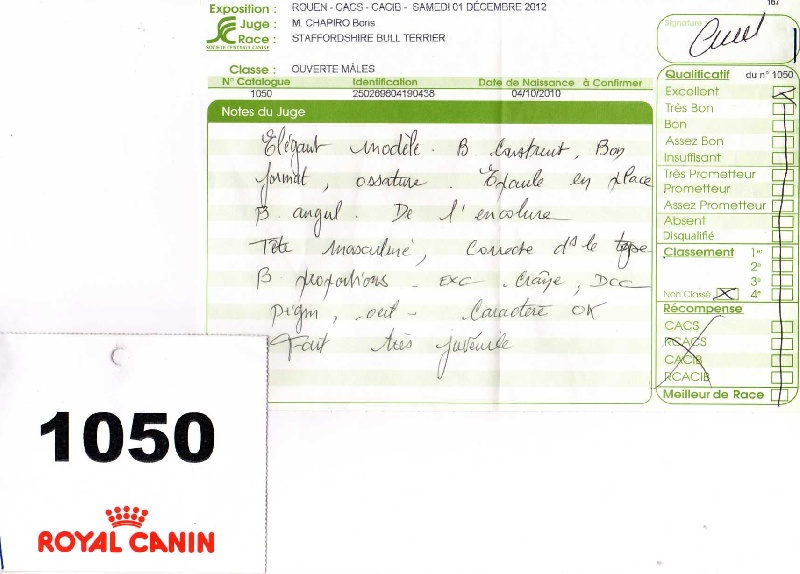 167
Exposition : ROUEN - CACS - CACIB - SAMEDI 01 DÉCEMBRE 2012
Juge : M. CHAPIRO Boris
Race : STAFFORDSHIRE BULL TERRIER
SOCIÉTÉ CENTRALE CANINE
Classe : OUVERTE MÂLES
N° Catalogue Identification Date de Naissance à Confirmer
1050 250269604190438 04/10/2010
Notes du Juge
Elégant modèle. B construit, Bon
format, ossature. Epaule en place
B angul. De l'encolure
Tête masculine, correcte ds le type
B proportions - EXC crâne, DCC
pigm, oeil - Caractère OK
Fait très juvénile
Signature
Qualificatif du n° 1050
Excellent
Très Bon
Bon
Assez Bon
Insuffisant
Très Prometteur
Prometteur
Assez Prometteur
Absent
Disqualifié
Classement 1er
2e
3e
Non Classé 4e
Récompense
CACS
RCACS
CACIB
RCACIB
Meilleur de Race
1050
ROYAL CANIN